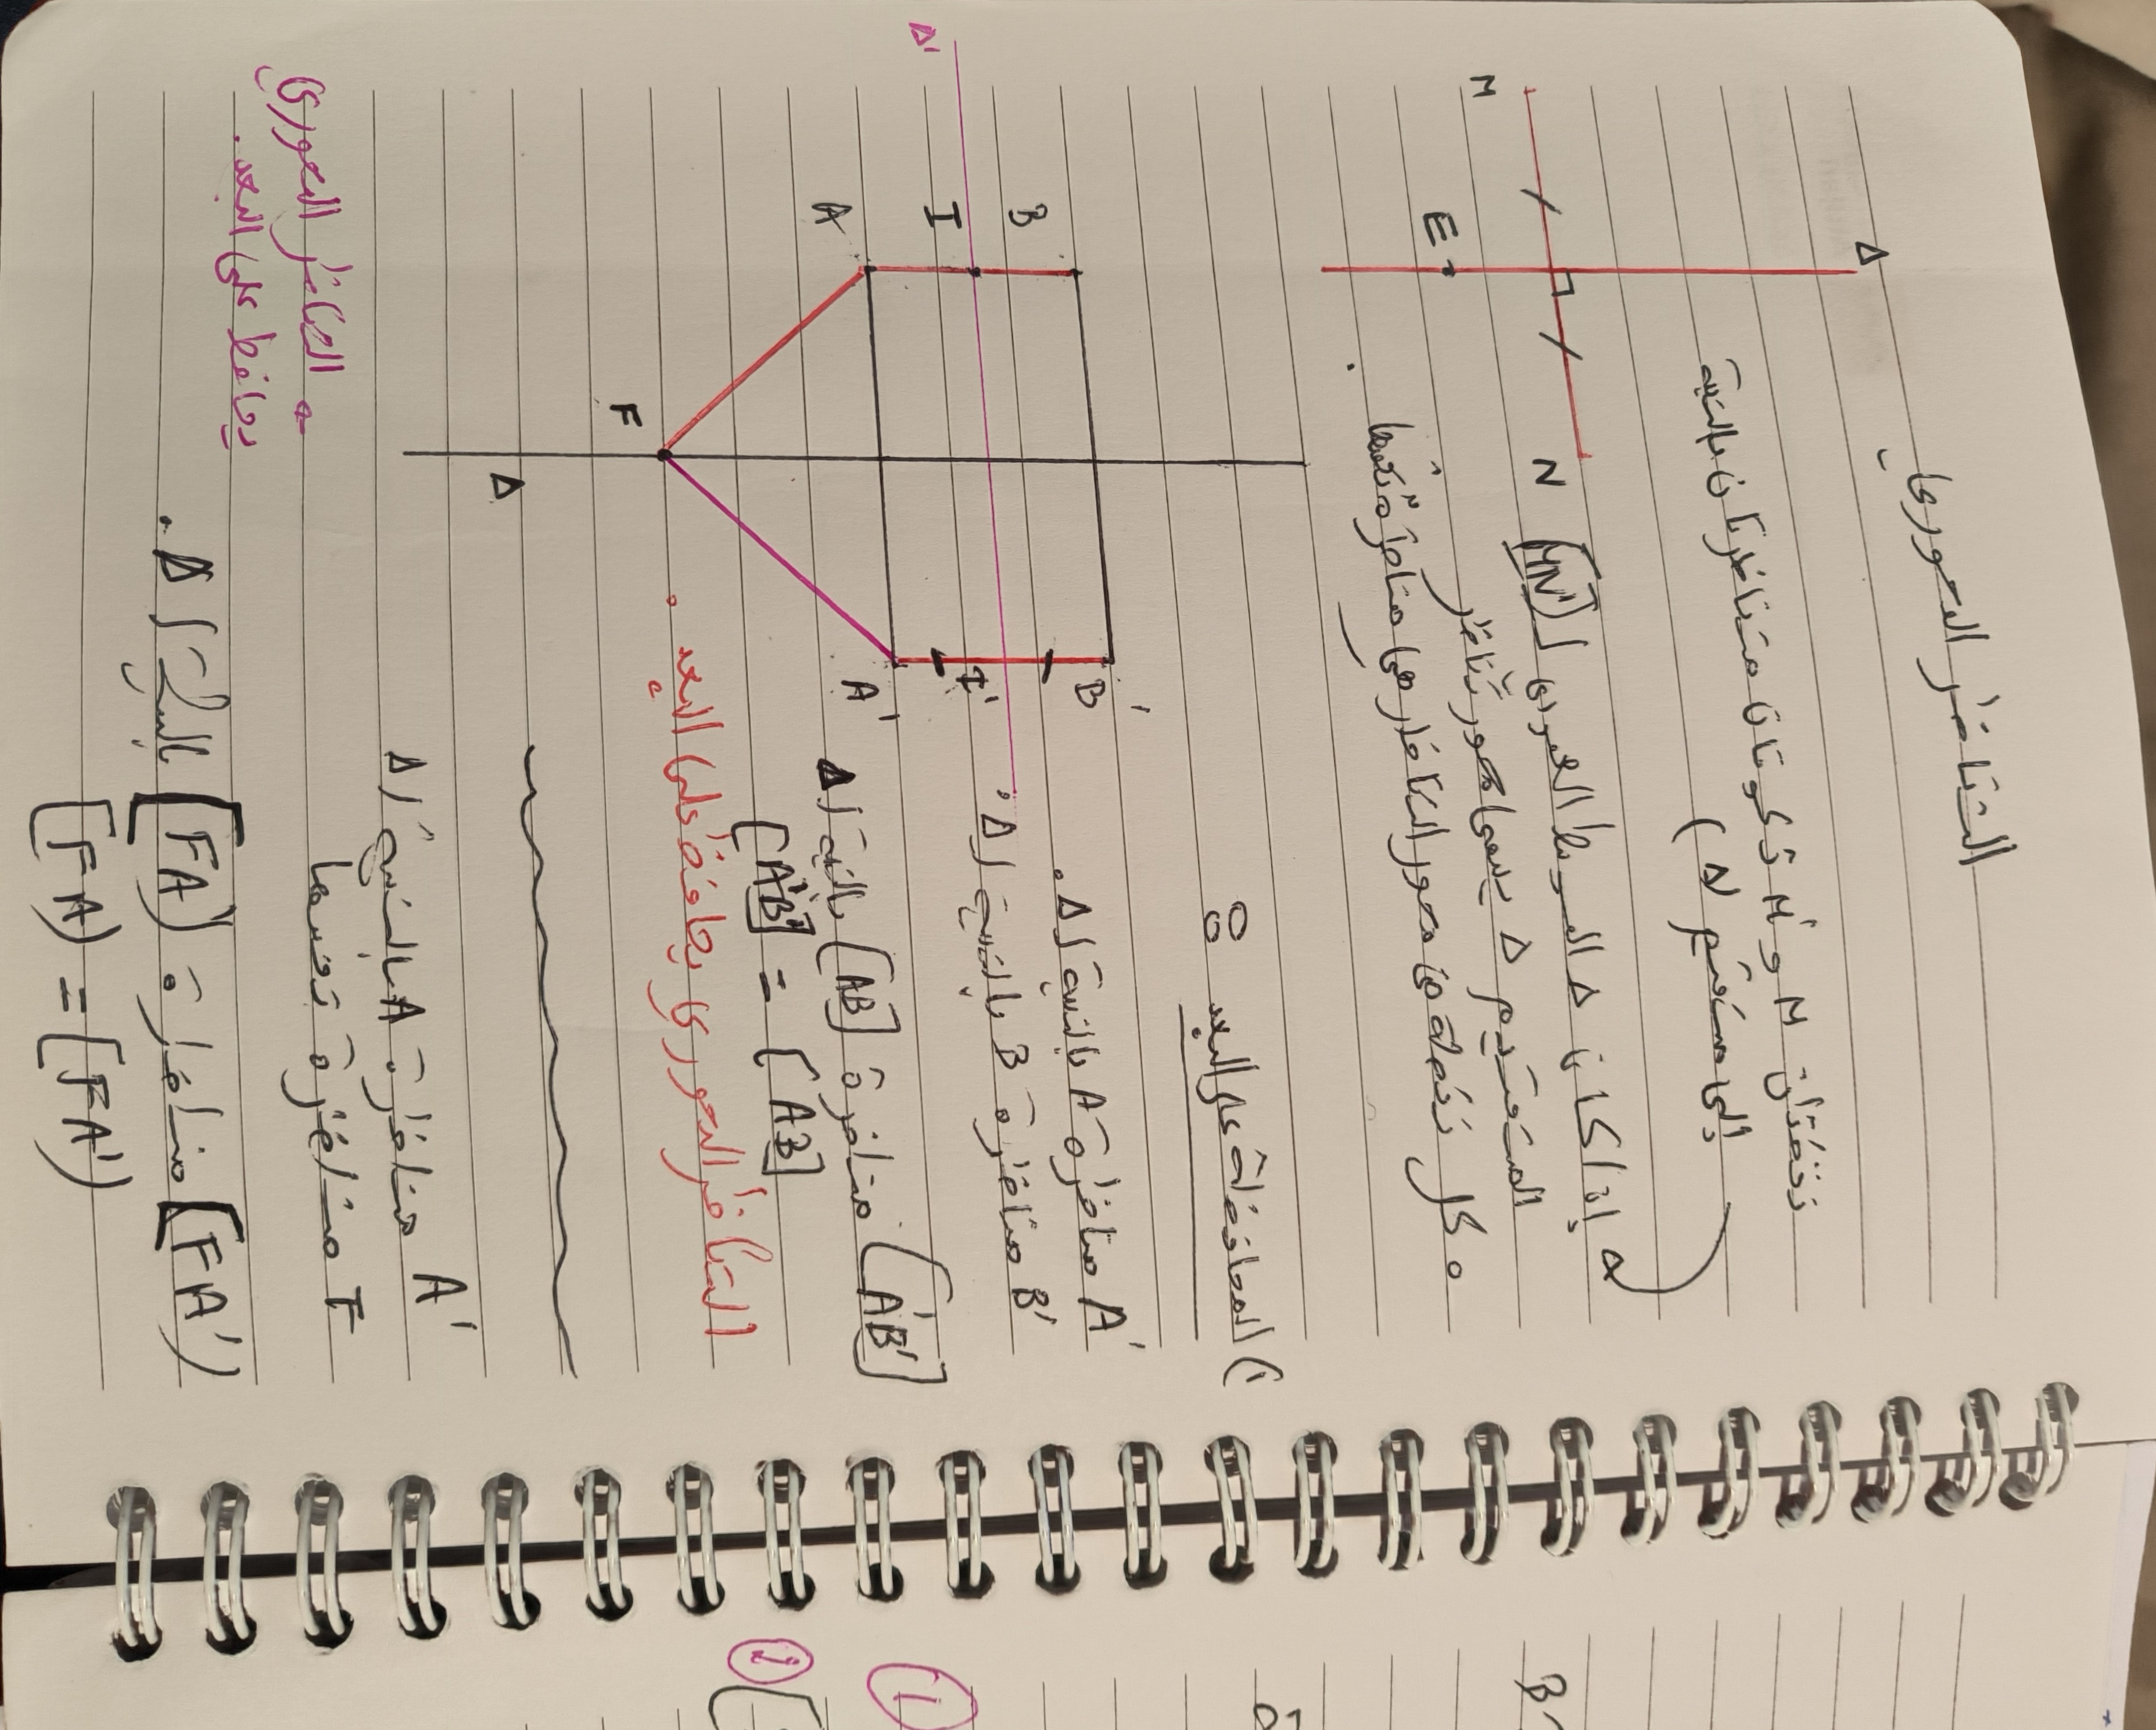 التناظر المحوري
نقطتان M و M' تكونان متناظرتان بالنسبة
إلى مستقيم (Δ
إذا كان Δ الموسط العمودي ل [MN]
المستقيم Δ يسمى محور تناظر
كل نقطة من محور التناظر هي مناظرة نفسها.
Δ
M
N
E
1) المحافظة على البعد
A' مناظرة A بالنسبة ل Δ.
B' مناظرة B بالنسبة ل Δ.
[A'B'] مناظرة [AB] بالنسبة ل Δ
[A'B'] = [AB]
التناظر المحوري يحافظ على البعد.
Δ'
B
I
A
B'
I'
A'
F
Δ
A' مناظرة A بالنسبة ل Δ
F مناظرة نفسها
[FA') مناظرة [FA) بالنسبة ل Δ.
[FA) = [FA')
التناظر المحوري
يحافظ على البعد.